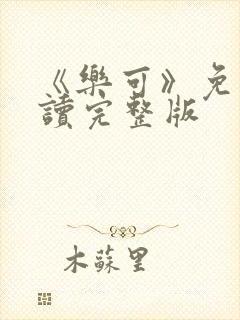 《樂可》免
讀完整版
木蘇里